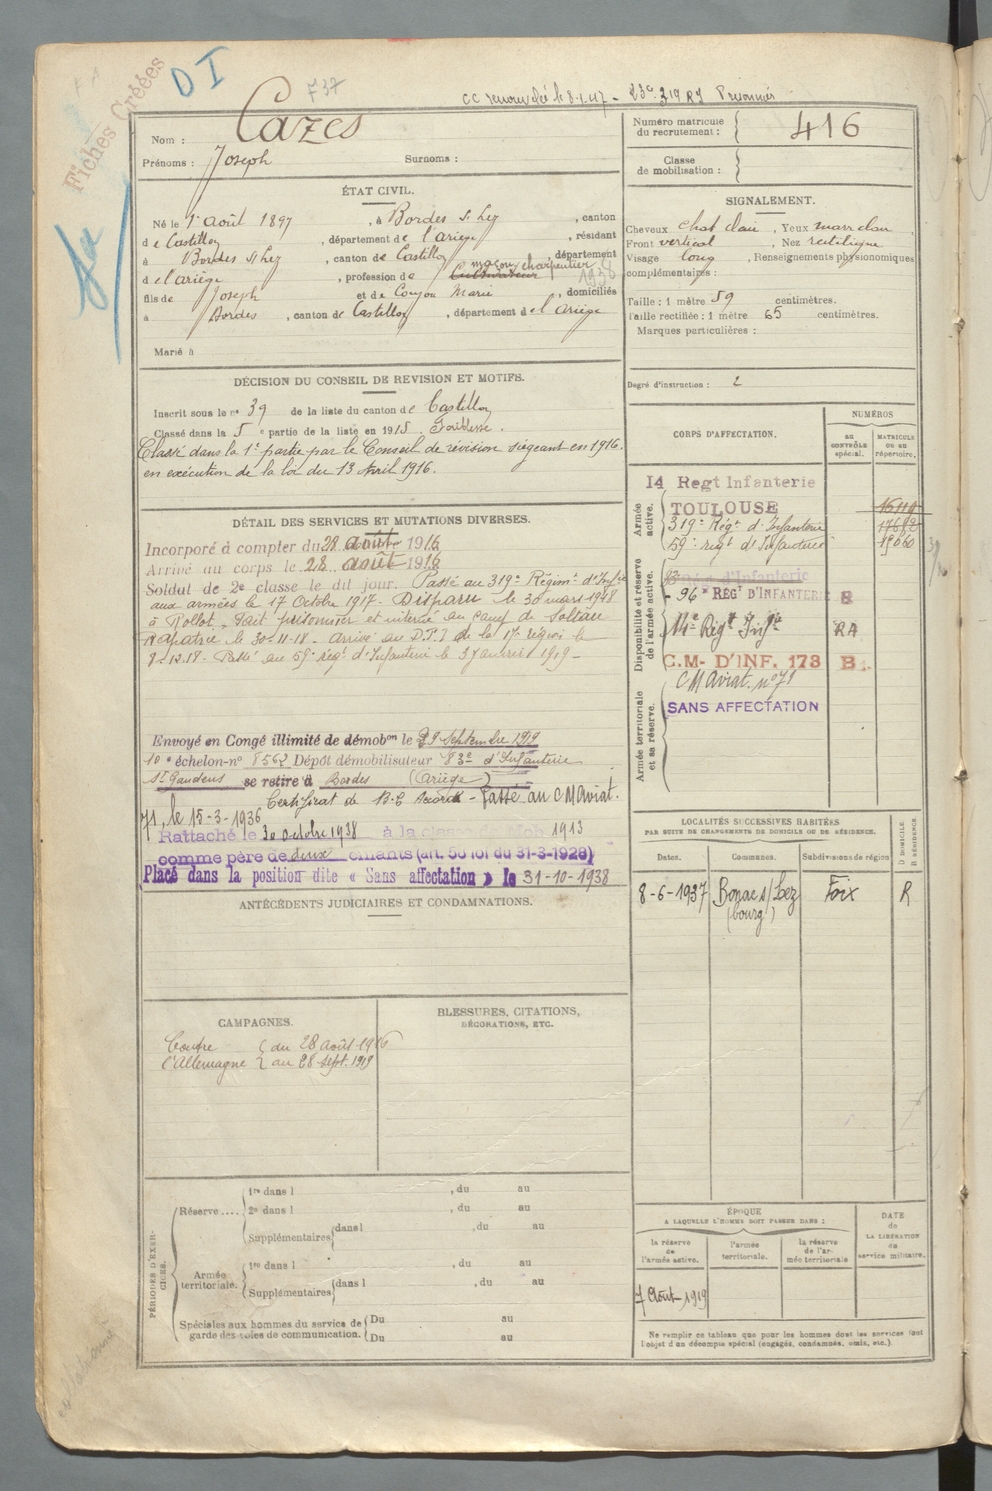 Fiches Créées
DI
737
CC renouvelée le 8-1-17 - 23e 319 RI Prisonnier
Nom : Cazes
Prénoms : Joseph Surnoms :
Numéro matricule du recrutement : 416
Classe de mobilisation :
ÉTAT CIVIL.
Né le 1er août 1897, à Bordes s. Lez, canton
de Castillon, département de l'ariège, résidant
à Bordes s. Lez, canton de Castillon, département
de l'ariège, profession de Cultivateur maçon charpentier 1938
fils de Joseph et de Coujou Marie, domiciliés
à Bordes, canton de Castillon, département de l'ariège
Marié à
SIGNALEMENT.
Cheveux chat clair, Yeux marr clair,
Front vertical, Nez rectiligne
Visage long, Renseignements physionomiques
complémentaires :
Taille : 1 mètre 59 centimètres.
Taille rectifiée : 1 mètre 65 centimètres.
Marques particulières :
Degré d'instruction : 2
DÉCISION DU CONSEIL DE REVISION ET MOTIFS.
Inscrit sous le no 39 de la liste du canton de Castillon
Classé dans la 5e partie de la liste en 1915 Faiblesse.
Classé dans la 1e partie par le Conseil de révision siégeant en 1916.
en exécution de la loi du 13 Avril 1916.
DÉTAIL DES SERVICES ET MUTATIONS DIVERSES.
Incorporé à compter du 28 août 1916
Arrivé au corps le 28 août 1916
Soldat de 2e classe le dit jour. Passé au 319e Régimt d'Infie
aux armées le 17 Octobre 1917. Disparu le 30 mars 1918
à Rollot, Fait prisonnier et interné au camp de Soltau
Rapatrié le 30-11-18. Arrivé au D.T.I de la 17e région le
8-12-18. Passé au 59e régt d'Infanterie le 3 janvier 1919-
Envoyé en Congé illimité de démobon le 29 Septembre 1919
10e échelon-no 8562 Dépôt démobilisateur 83e d'Infanterie
St Gaudens se retire à Bordes (Ariège)
Certificat de B.C Accordé - Passé au CM Aviat.
71, le 15-3-1936
Rattaché le 30 octobre 1938 à la classe de Mob 1913
comme père de deux enfants (art. 58 loi du 31-3-1928)
Placé dans la position dite « Sans affectation » le 31-10-1938
ANTÉCÉDENTS JUDICIAIRES ET CONDAMNATIONS.
CORPS D'AFFECTATION.
NUMÉROS
AU CONTRÔLE spécial.
MATRICULE OU AU répertoire.
Armée active.
14 Regt Infanterie
TOULOUSE 16119
319e Régt d'Infanterie 17682
59e régt d'Infanterie 19660
Disponibilité et réserve de l'armée active.
d'Infanterie
96e RÉGT D'INFANTERIE 8
14e Régt Infie RA
C.M- D'INF. 173 B
Armée territoriale et sa réserve.
CM Aviat. no 71
SANS AFFECTATION
LOCALITÉS SUCCESSIVES HABITÉES
PAR SUITE DE CHANGEMENTS DE DOMICILE OU DE RÉSIDENCE.
D DOMICILE R RÉSIDENCE.
Dates. Communes. Subdivisions de région
8-6-1937 Bonac s/ Lez (bourg) Foix R
CAMPAGNES.
Contre l'Allemagne du 28 août 1916
au 28 sept. 1919
BLESSURES, CITATIONS,
DÉCORATIONS, ETC.
PÉRIODES D'EXERCICES.
Réserve....
1re dans l , du au
2e dans l , du au
Supplémentaires dans l , du au
Armée territoriale.
1re dans l , du au
Supplémentaires dans l , du au
Spéciales aux hommes du service de garde des voies de communication.
Du au
Du au
ÉPOQUE
A LAQUELLE L'HOMME DOIT PASSER DANS :
la réserve de l'armée active.
l'armée territoriale.
la réserve de l'armée territoriale
DATE de LA LIBÉRATION du service militaire.
7 Août 1919
Ne remplir ce tableau que pour les hommes dont les services font
l'objet d'un décompte spécial (engagés, condamnés, omis, etc.).